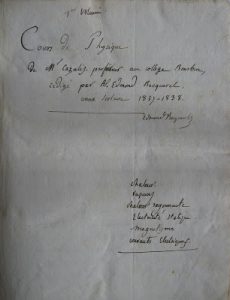 1er Volume
Cours de Physique
De Mr Cazalis, professeur au collège Bourbon,
rédigé par Al. Edmond Becquerel.
année scolaire 1837-1838.
Edmond Becquerel
chaleur
vapeurs
chaleur rayonnante
Electricité statique
magnétisme
courants électriques